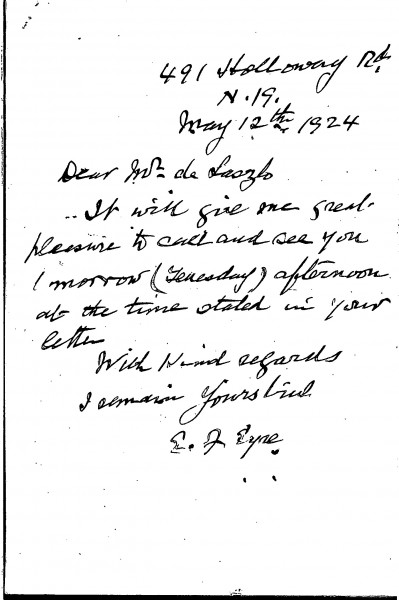 491 Holloway Rd.
N.19.
May 12th 1924
Dear Mr. de Laszlo
It will give me great
pleasure to call and see you
tomorrow (Tuesday) afternoon
at the time stated in your
letter
With Kind regards
I remain Yours truly
E. F Eyre